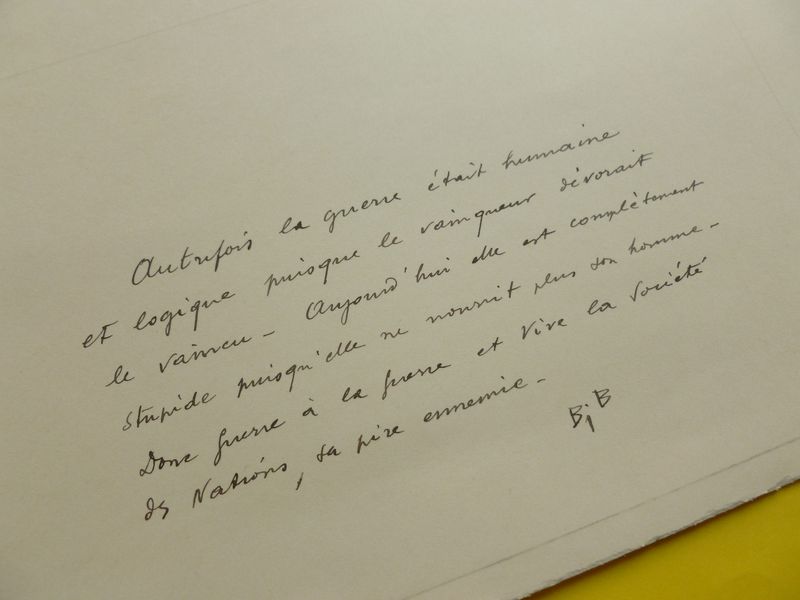 Autrefois la guerre était humaine
et logique puisque le vainqueur dévorait
le vaincu - Aujourd'hui elle est complètement
stupide puisqu'elle ne nourrit plus son homme -
Donc guerre à la guerre et vive la Société
des Nations, sa pire ennemie -
BiB